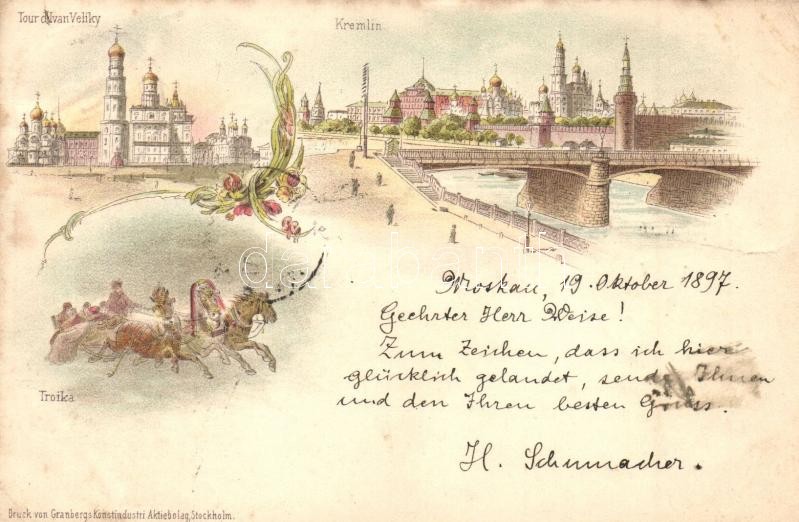 Tour d'Ivan Veliky
Kremlin
Moskau, 19. Oktober 1897.
Geehrter Herr Weise!
Zum Zeichen, dass ich hier
glücklich gelandet, sende Ihnen
und den Ihren besten Gruss.
H. Schumacher.
Troika
Druck von Granbergs Konstindustri Aktiebolag, Stockholm.